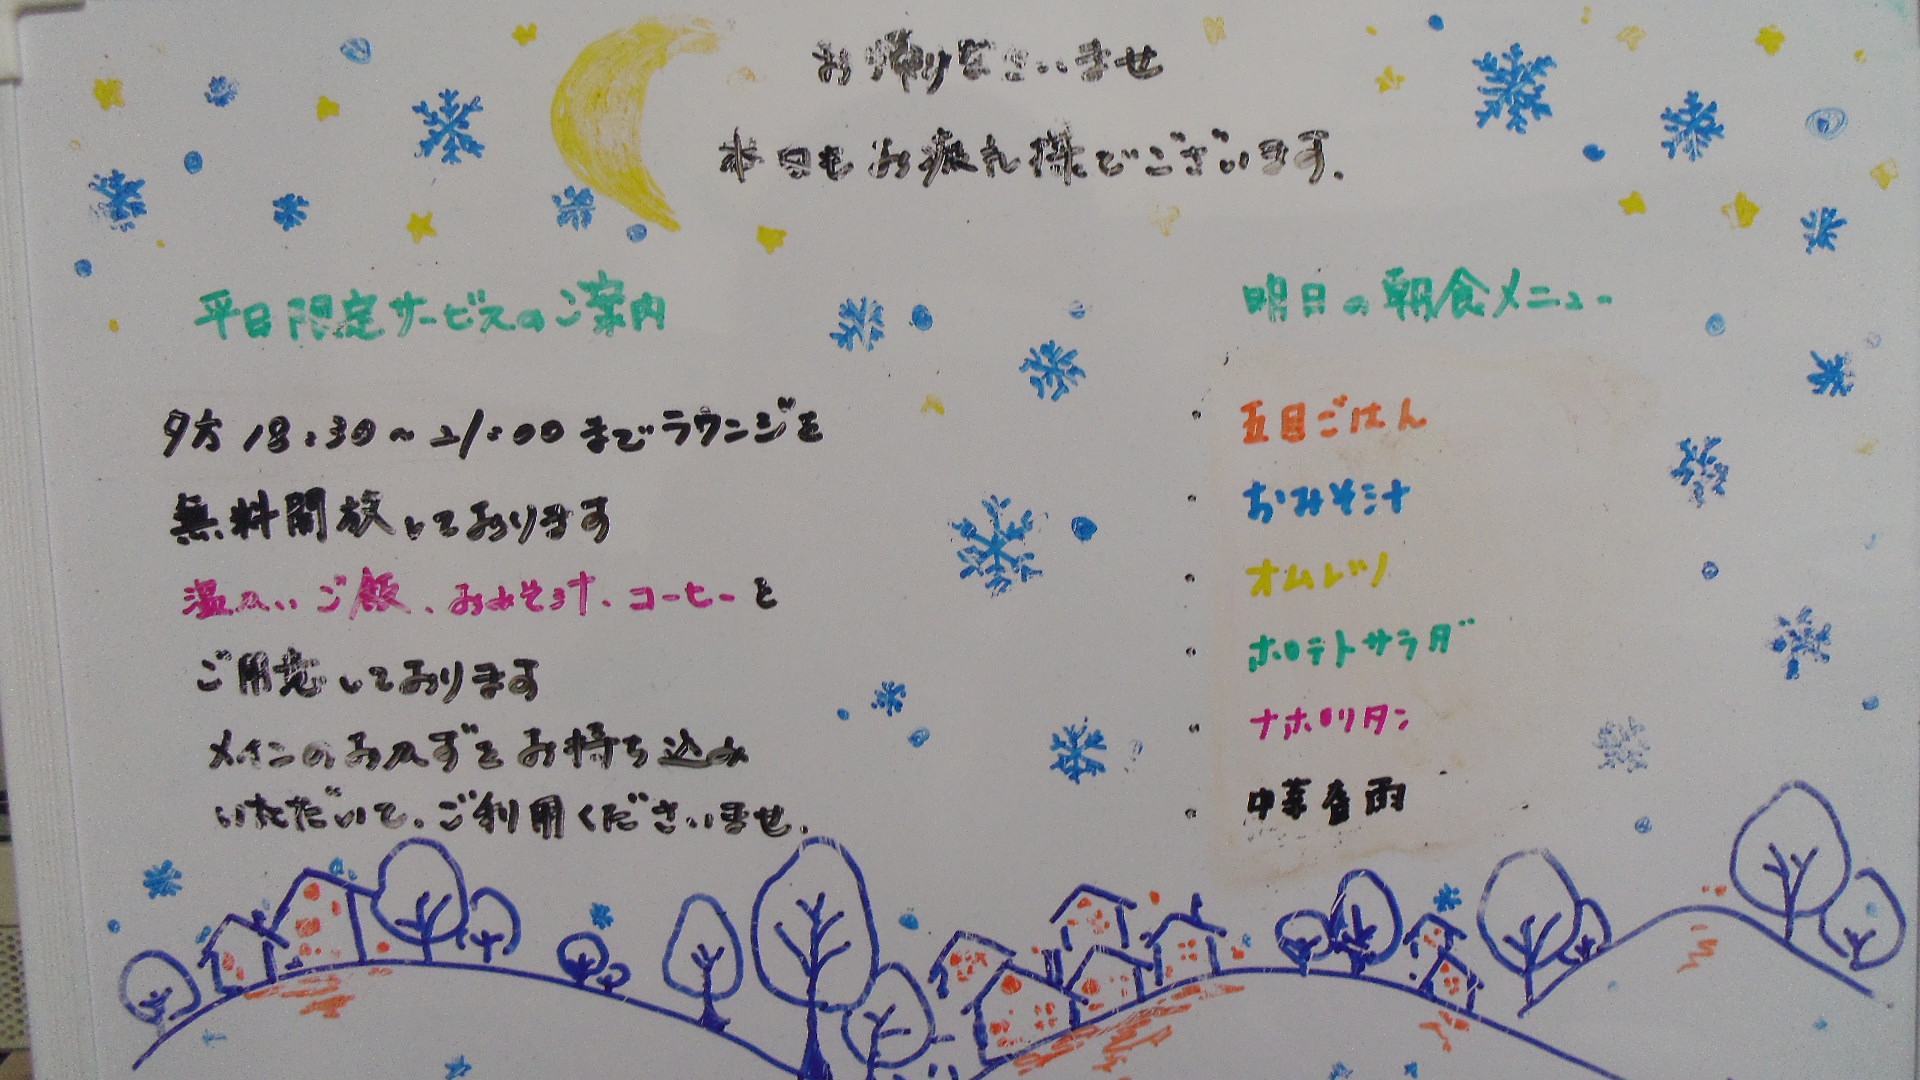 お帰りなさいませ
本日もお疲れ様でございます.
平日限定サービスのご案内
夕方 18:30~21:00 までラウンジを
無料開放しております
温かいご飯、おみそ汁、コーヒーを
ご用意しております
メインのおかずをお持ち込み
いただいて、ご利用くださいませ.
明日の朝食メニュー
・五目ごはん
・おみそ汁
・オムレツ
・ポテトサラダ
・ナポリタン
・中華春雨